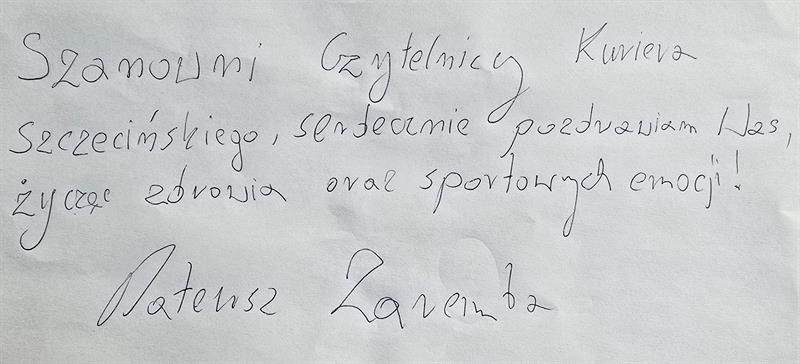 Szanowni Czytelnicy Kuriera
Szczecińskiego, serdecznie pozdrawiam Was,
życząc zdrowia oraz sportowych emocji!
Mateusz Zaremba